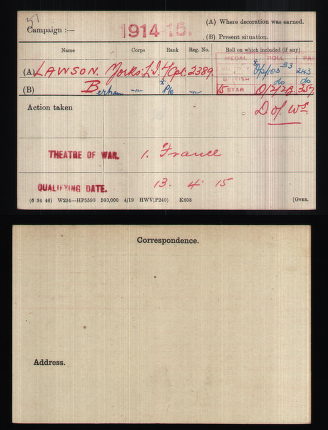 Campaign :— 1914 15. (A) Where decoration was earned.
(B) Present situation.
Name Corps Rank Reg. No. Roll on which included (if any)
MEDAL ROLL PAGE
(A) LAWSON. Yorks: L.I. 2389
BRITISH do do
(B) Bertram —"— Pte —"— STAR 357
Action taken D of Ws
THEATRE OF WAR. 1. France
QUALIFYING DATE. 13. 4. 15
(6 34 46) W234—HP5590 500,000 4/19 HWV(P240) K608 [OVER.
Correspondence.
Address.